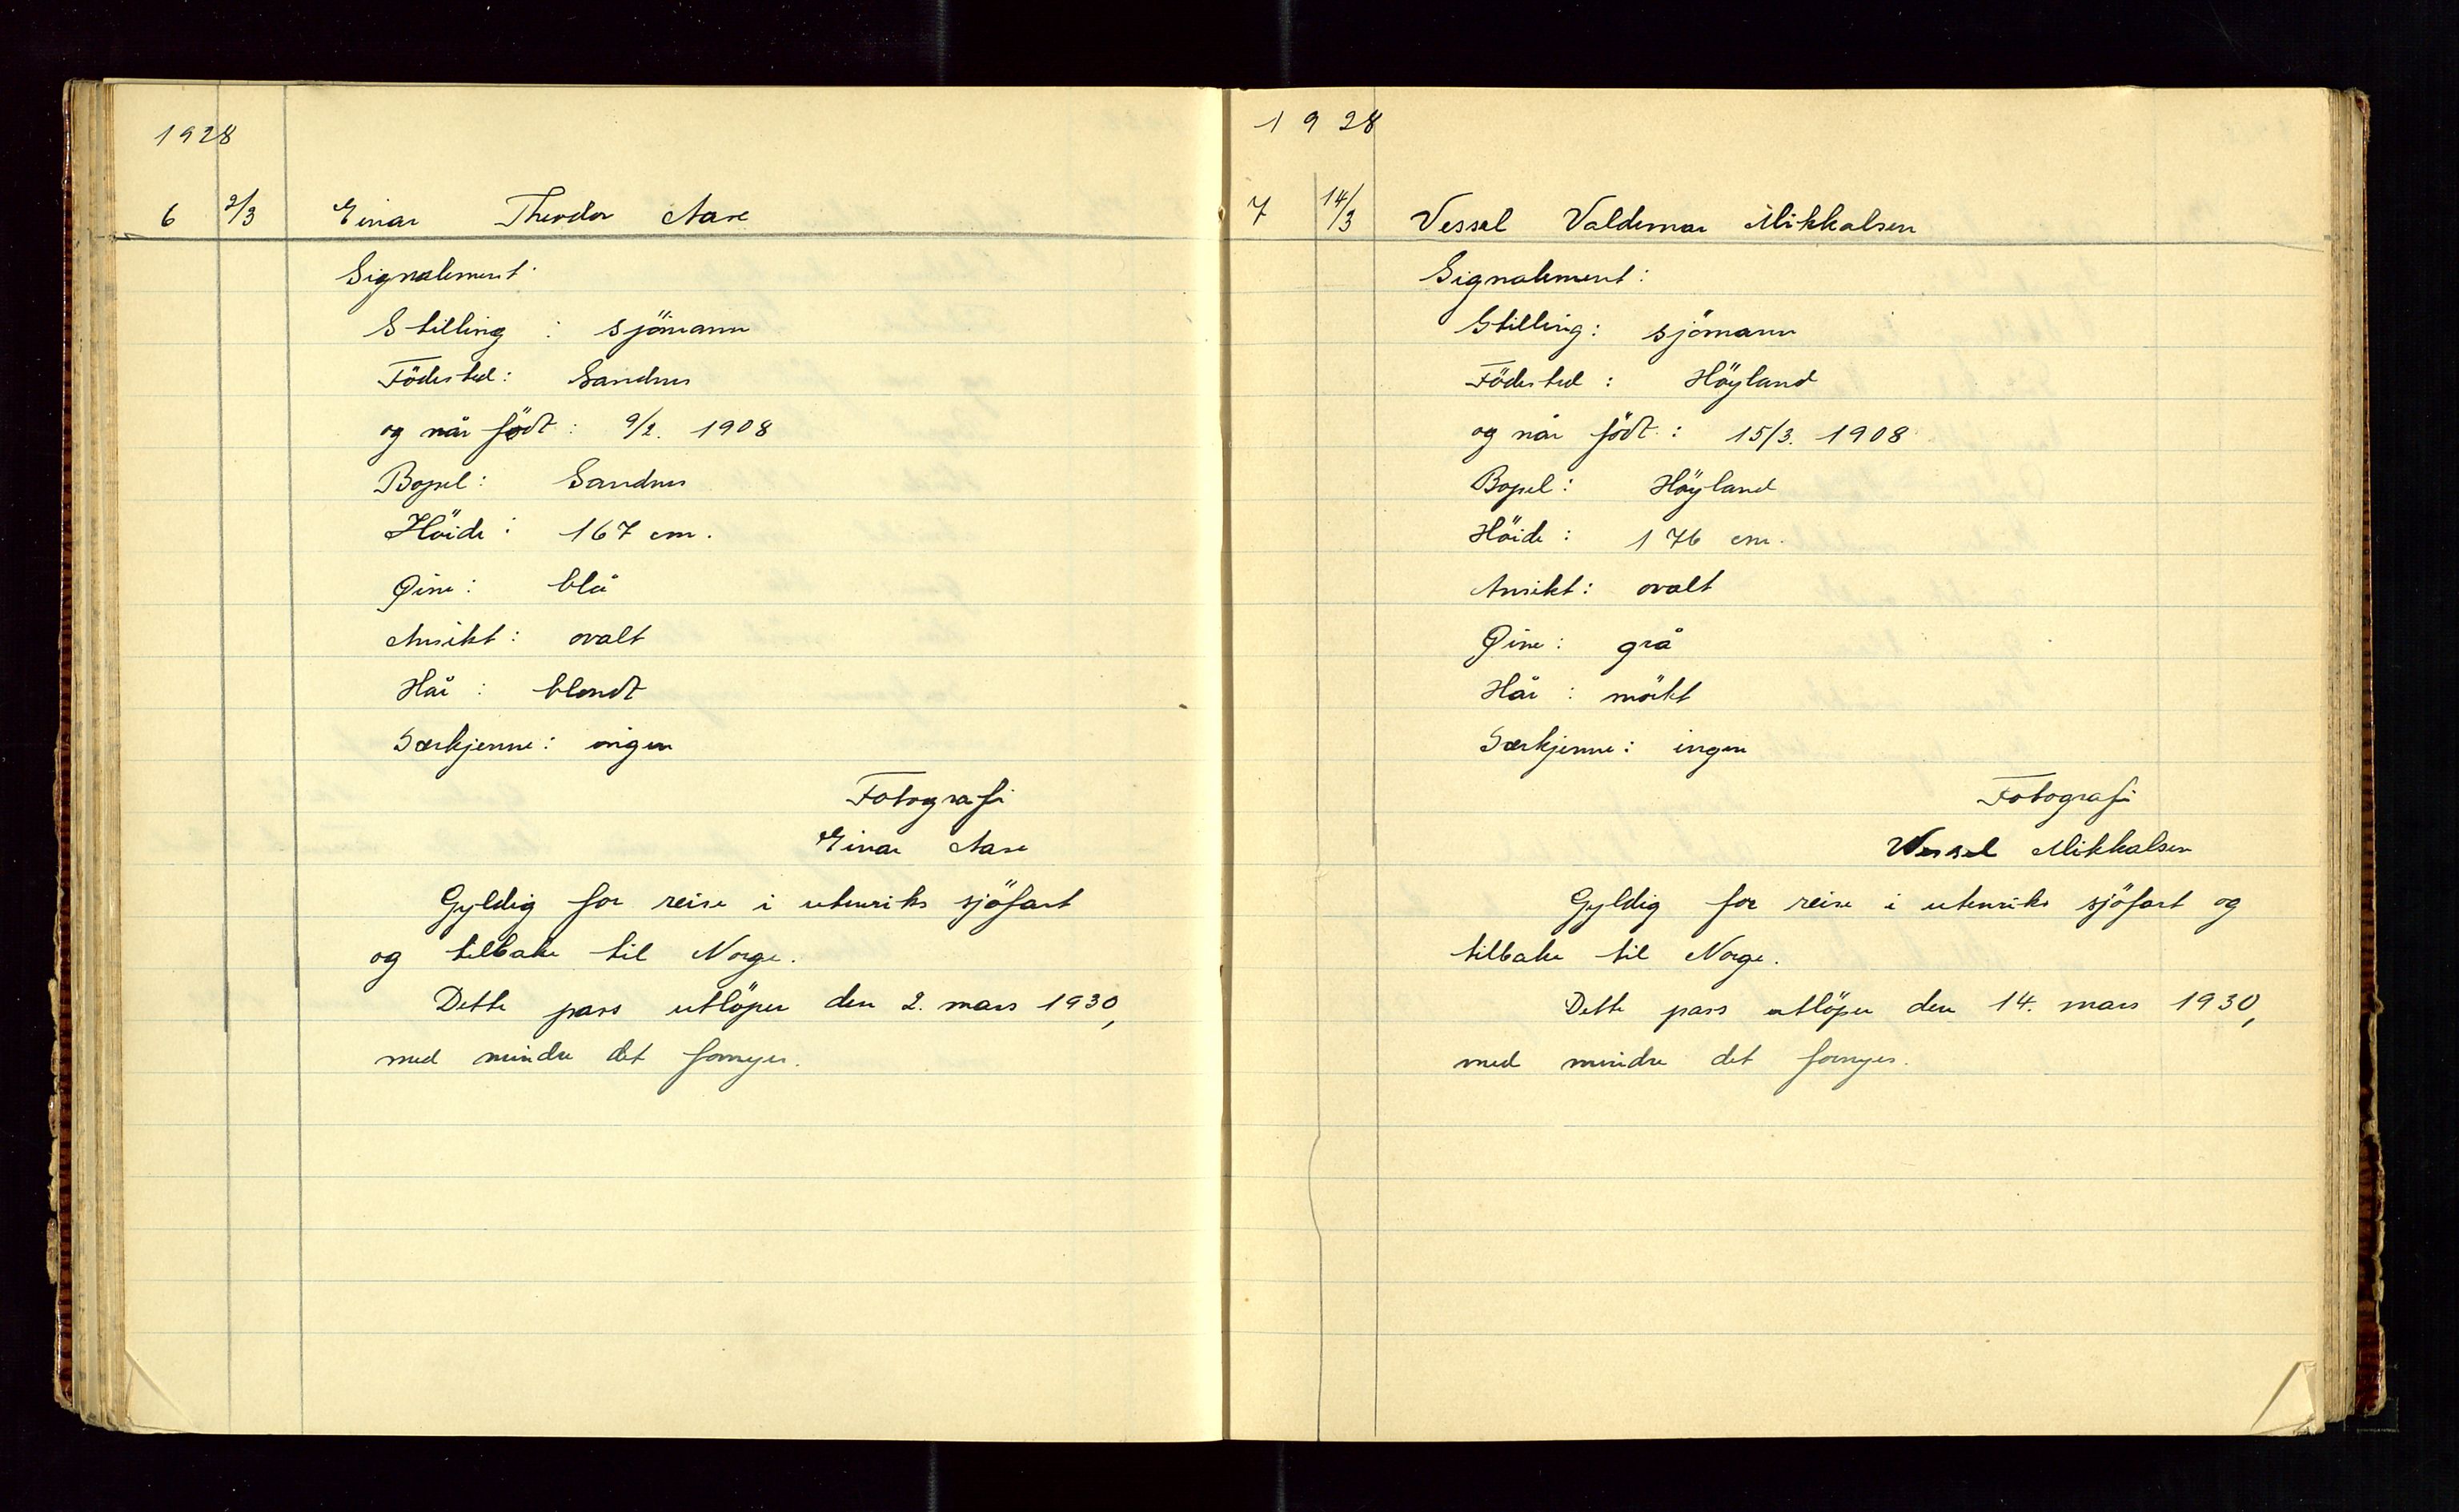 1928
6 2/3 Einar Theodor Aase
Signalement:
Stilling : sjömann
Födested: Sandnes
og når födt : 9/2. 1908
Bopel: Sandnes
Höide : 167 cm.
Øine: blå
Ansikt: ovalt
Hår : blondt
Særkjenne: ingen
Fotografi
Einar Aase
Gyldig for reise i utenriks sjöfart
og tilbake til Norge.
Dette pass utlöper den 2. mars 1930,
med mindre det fornyes.
1928
7 14/3 Vessel Valdemar Mikkalsen
Signalement:
Stilling: sjömann
Födested : Höyland
og når födt : 15/3. 1908
Bopel: Höyland
Höide : 176 cm.
Ansikt: ovalt
Øine: grå
Hår : mörkt
Særkjenne: ingen
Fotografi
Wessel Mikkalsen
Gyldig for reise i utenriks sjöfart og
tilbake til Norge.
Dette pass utlöper den 14. mars 1930,
med mindre det fornyes.